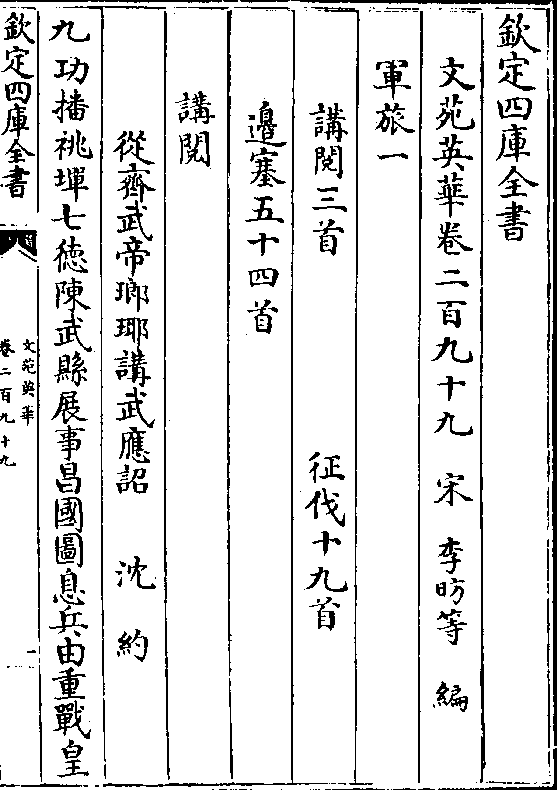 欽定四庫全書
文苑英華卷二百九十九　宋　李昉等　編
軍旅一
講閱三首　征伐十九首
邊塞五十四首
講閱
從齊武帝瑯琊講武應詔　沈約
九功播祧墠七徳陳武縣展事昌國圖息兵由重戰皇
欽定四庫全書
文苑英華
卷二百九十九
一